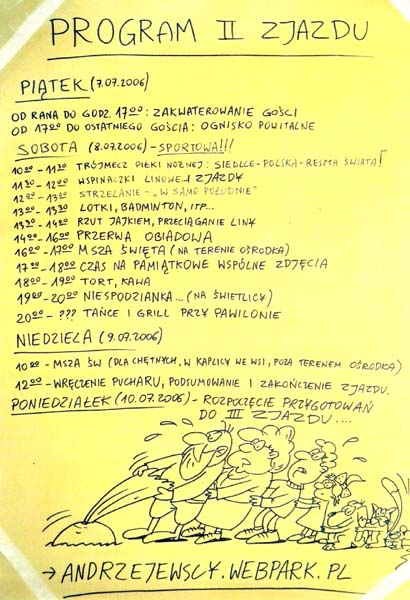 PROGRAM II ZJAZDU
PIĄTEK (7.07.2006)
OD RANA DO GODZ. 17⁰⁰: ZAKWATEROWANIE GOŚCI
OD 17⁰⁰ DO OSTATNIEGO GOŚCIA: OGNISKO POWITALNE
SOBOTA (8.07.2006) - SPORTOWA!!!
10⁰⁰ - 11³⁰ TRÓJMECZ PIŁKI NOŻNEJ: SIEDLCE-POLSKA-RESZTA ŚWIATA!
11³⁰ - 12⁰⁰ WSPINACZKI LINOWE... I ZJAZDY
12⁰⁰ - 13⁰⁰ STRZELANIE - „W SAMO POŁUDNIE"
13⁰⁰ - 13³⁰ LOTKI, BADMINTON, ITP...
13³⁰ - 14⁰⁰ RZUT JAJKIEM, PRZECIĄGANIE LINY
14⁰⁰ - 16⁰⁰ PRZERWA OBIADOWA
16⁰⁰ - 17⁰⁰ MSZA ŚWIĘTA (NA TERENIE OŚRODKA)
17⁰⁰ - 18⁰⁰ CZAS NA PAMIĄTKOWE WSPÓLNE ZDJĘCIA
18⁰⁰ - 19⁰⁰ TORT, KAWA
19⁰⁰ - 20⁰⁰ NIESPODZIANKA... (NA ŚWIETLICY)
20⁰⁰ - ??? TAŃCE I GRILL PRZY PAWILONIE
NIEDZIELA (9.07.2006)
10⁰⁰ - MSZA ŚW (DLA CHĘTNYCH, W KAPLICY WE WSI, POZA TERENEM OŚRODKA)
12⁰⁰ - WRĘCZENIE PUCHARU, PODSUMOWANIE I ZAKOŃCZENIE ZJAZDU.
PONIEDZIAŁEK (10.07.2006) - ROZPOCZĘCIE PRZYGOTOWAŃ
DO III ZJAZDU....
→ ANDRZEJEWSCY.WEBPARK.PL